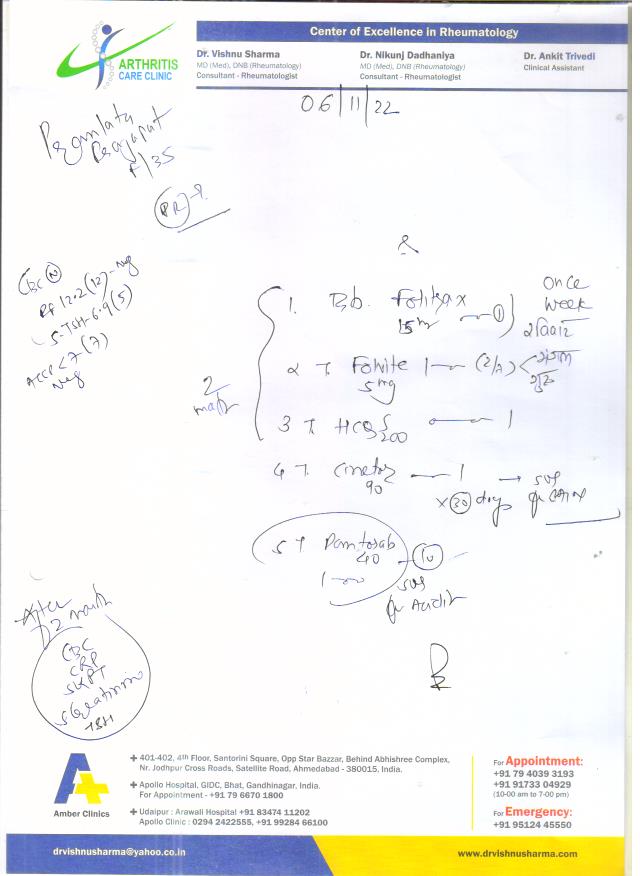 Center of Excellence in Rheumatology
ARTHRITIS
CARE CLINIC
Dr. Vishnu Sharma
MD (Med), DNB (Rheumatology)
Consultant - Rheumatologist
Dr. Nikunj Dadhaniya
MD (Med), DNB (Rheumatology)
Consultant - Rheumatologist
Dr. Ankit Trivedi
Clinical Assistant
06/11/22
F/35
CBC N
RF 12.2 (12) - Neg
S-TSH-6.9 (5)
ACCP < 7 (7)
Neg
1. Folitrax
15
1
once
week
2 T Folvite 1
5 mg
3 T HCQS 1
200
4 T 1
90
x 30 days
sos
5 T Pantosab
40
10
1
sos
After
2 month
CBC
CRP
SGPT
S Creatinine
TSH
Amber Clinics
401-402, 4th Floor, Santorini Square, Opp Star Bazzar, Behind Abhishree Complex,
Nr. Jodhpur Cross Roads, Satellite Road, Ahmedabad - 380015, India.
Apollo Hospital, GIDC, Bhat, Gandhinagar, India.
For Appointment - +91 79 6670 1800
Udaipur : Arawali Hospital +91 83474 11202
Apollo Clinic : 0294 2422555, +91 99284 66100
For Appointment:
+91 79 4039 3193
+91 91733 04929
(10-00 am to 7-00 pm)
For Emergency:
+91 95124 45550
drvishnusharma@yahoo.co.in
www.drvishnusharma.com